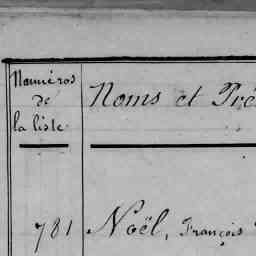 Numéros
de
la liste
Noms et Pré
781 Noël, François